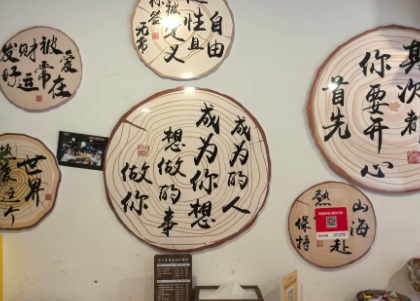 发财被爱
好运常在
无常
被定义
性且
自由
首先
你要开心
其次都
做你
想做的事
成为你想
成为的人
爱这个
世界
保持
熱
赴
山海